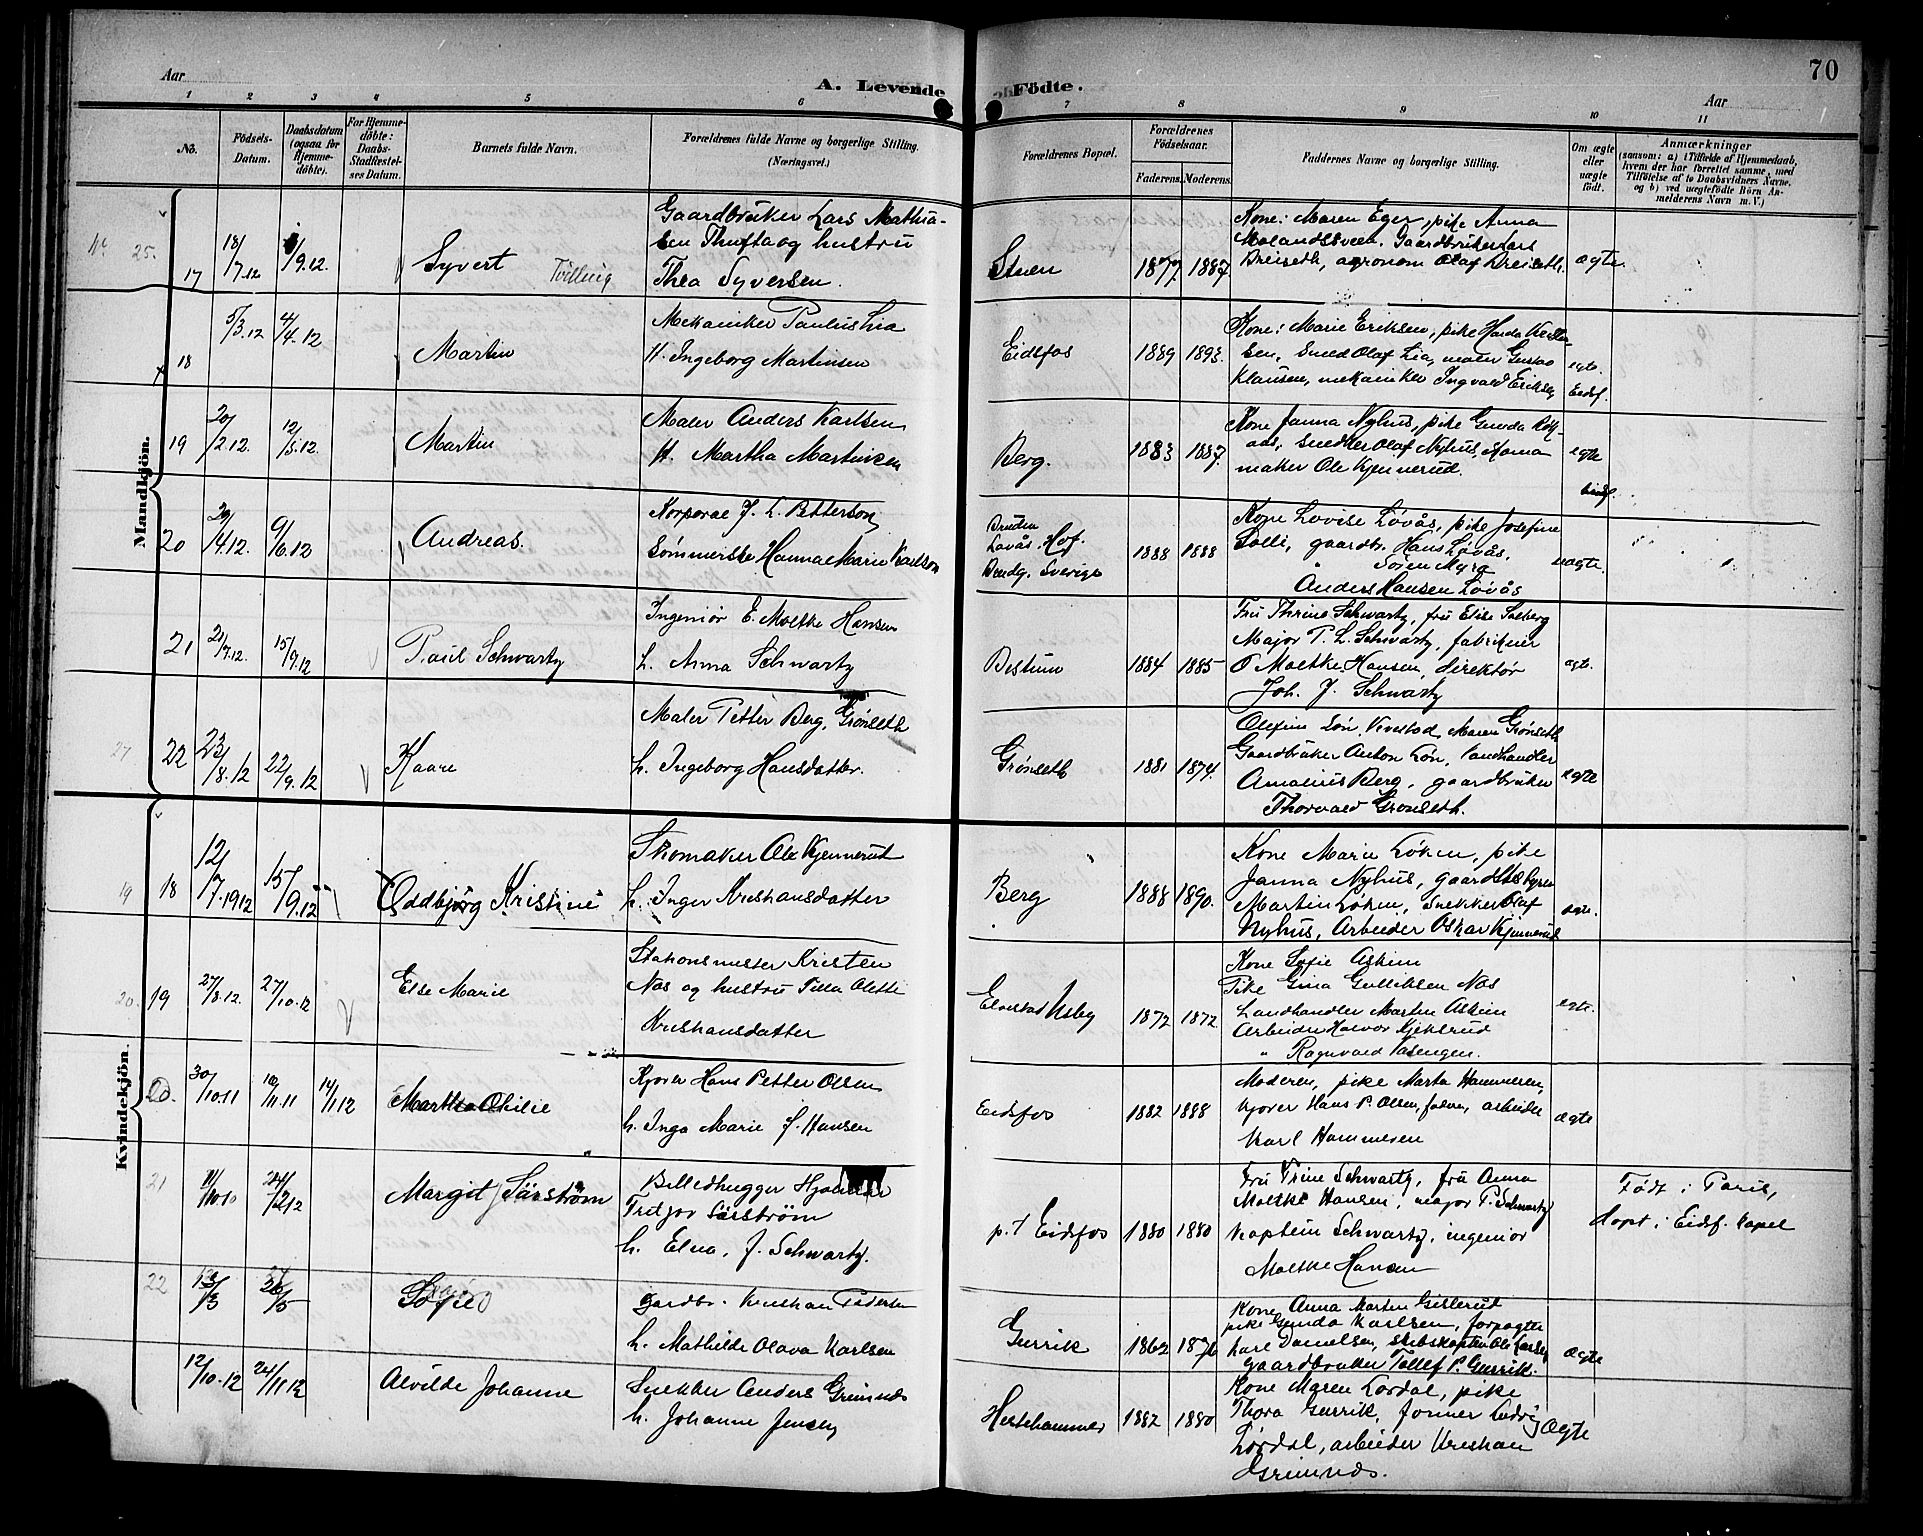 70
Aar
A. Levende Födte.
Aar
1 2 3 4 5 6 7 8 9 10 11
No.
Födsels-
Datum.
Daabsdatum
(ogsaa for
Hjemme-
döbte).
For Hjemme-
döbte:
Daabs-
Stadfæstel-
ses Datum.
Barnets fulde Navn.
Forældrenes fulde Navne og borgerlige Stilling.
(Næringsvei.)
Forældrenes Bopæl.
Forældrenes
Födselsaar.
Faderens. Moderens.
Faddernes Navne og borgerlige Stilling.
Om ægte
eller
uægte
födt.
Anmærkninger
(saasom: a) i Tilfælde af Hjemmedaab,
hvem der har forrettet samme, med
Tilföielse af to Daabsvidners Navne.
og b) ved uægtefödte Börn An-
melderens Navn m. V.)
Mandkjön.
25.
17
18/7.12
/9.12.
Syvert Tvilling
Gaardbruker Lars Mathia-
sen Thufta og hustru
Thea Syversen.
Stuen
1877 1887
Kone: Maren Eger, pike Anna
Molandssveen, Gaardbruker Lars
Breiseth, agronom Olaf Breiseth.
ægte.
18
5/3.12
4/4.12
Martin
Mekaniker Paulus Lia
H. Ingeborg Martinsen
Eidsfos
1889 1893.
Kone: Marie Eriksen, pike
sen, Smed Olaf Lia, maler Gustav
Klausen, mekaniker Ingvald Eriksen
egte.
Eidsf.
19
20/2.12.
12/5.12
Martin
Maler Anders Karlsen
H. Martha Martinsen
Berg.
1883 1887.
Kone Janna Nyhus, pike Gunda
aas, Snedker Olaf Nyhus, skoma
maker Ole Kjennerud.
egte
20
/4.12.
9/6.12
Andreas.
Korporal J. L. Petterson
Sømmerske Hanna Marie Karlson
Løvås, Hof.
Sverige
1888 1888
Kone Lovise Løvås, pike Josefine
Solli, gaardbr. Hans Løvås,
" Søren Myra
Anders Hansen Løvås
uægte.
21
21/7.12.
15/9.12
Paul Schwartz
Ingeniør E. Moltke Hansen
h. Anna Schwartz
Bestum
1884 1885
Fru Thrine Schwartz, fru Elise
Major P. L. Schwartz, fabrikeier
O Moltke Hansen, direktør
Joh. J. Schwartz
ægte.
27
22
23/8.12
22/9.12
Kaare
Maler Petter Berg, Grønseth
h. Ingeborg Hansdatter.
Grønseth
1881 1874.
Løn, Maren Grønseth
Gaardbruker Anton Løn, landhandler
Amalius Berg, gaardbruker
Thorvald Grønseth.
egte
Kvindekjön.
19
18
12/7.1912
15/9.12
Oddbjørg Kristine
Skomaker Ole Kjennerud
h. Inger Kristiansdatter
Berg
1888 1890.
Kone Marie Løken, pike
Janna Nyhus, gaardbestyrer
Martin Løken, Snekker Olaf
Nyhus, Arbeider Oskar Kjennerud
ægte.
20.
19
27/8.12.
27/10.12
Else Marie
Stationsmester Kristen
Næs og hustru Tilla Olette
Kristiansdatter
1872 1872.
Kone Sofie Askim
Pike Gina Gulliksen Næs
Landhandler Martin Askim
Arbeider Halvor Kjeklerud
" Ragnvald Vasengen.
egte.
20.
30/10.11
/11.11
14/1 12
Martha Othilie
Kjører Hans Petter Olsen
h. Inga Marie f. Hansen
Eidsfos
1882 1888
Moderen, pike Marta Hammeren,
kjører Hans P. Olsen, faderen, arbeider
Karl Hammeren
ægte
21
11/10 10
24/2 12
Margit Särström
Billedhugger Hjalmar
Fritjov Särström
h. Elna, f. Schwartz.
p.t Eidsfos
1880 1880
Fru Trine Schwartz, fru Anna
Moltke Hansen, major P. Schwartz
Kaptein Schwartz, ingeniør
Moltke Hansen
Født i Paris,
døpt i Eidsf. kapel
22
/3
26/5
Sofie
gaardbr. Kristian Pedersen
h. Mathilde Olava Karlsen
Gurrik
1862 1876
Kone Anna Marten Gislerud
pike Gunda Karlsen, forpagter
Karl Danielsen, skibskaptein Ole Karlsen
gaardbruker Tollef P. Gurrik.
Ægte
12/10.12
24/11 12
Alvilde Johanne
Snekker Anders Grimnæs
h. Johanne Jensen
Hestehammer
1882 1880
Kone Maren Lørdal, pike
Thora Gurrik, former Ludvig
Lørdal, arbeider Kristian
Grimnæs.
Ægte